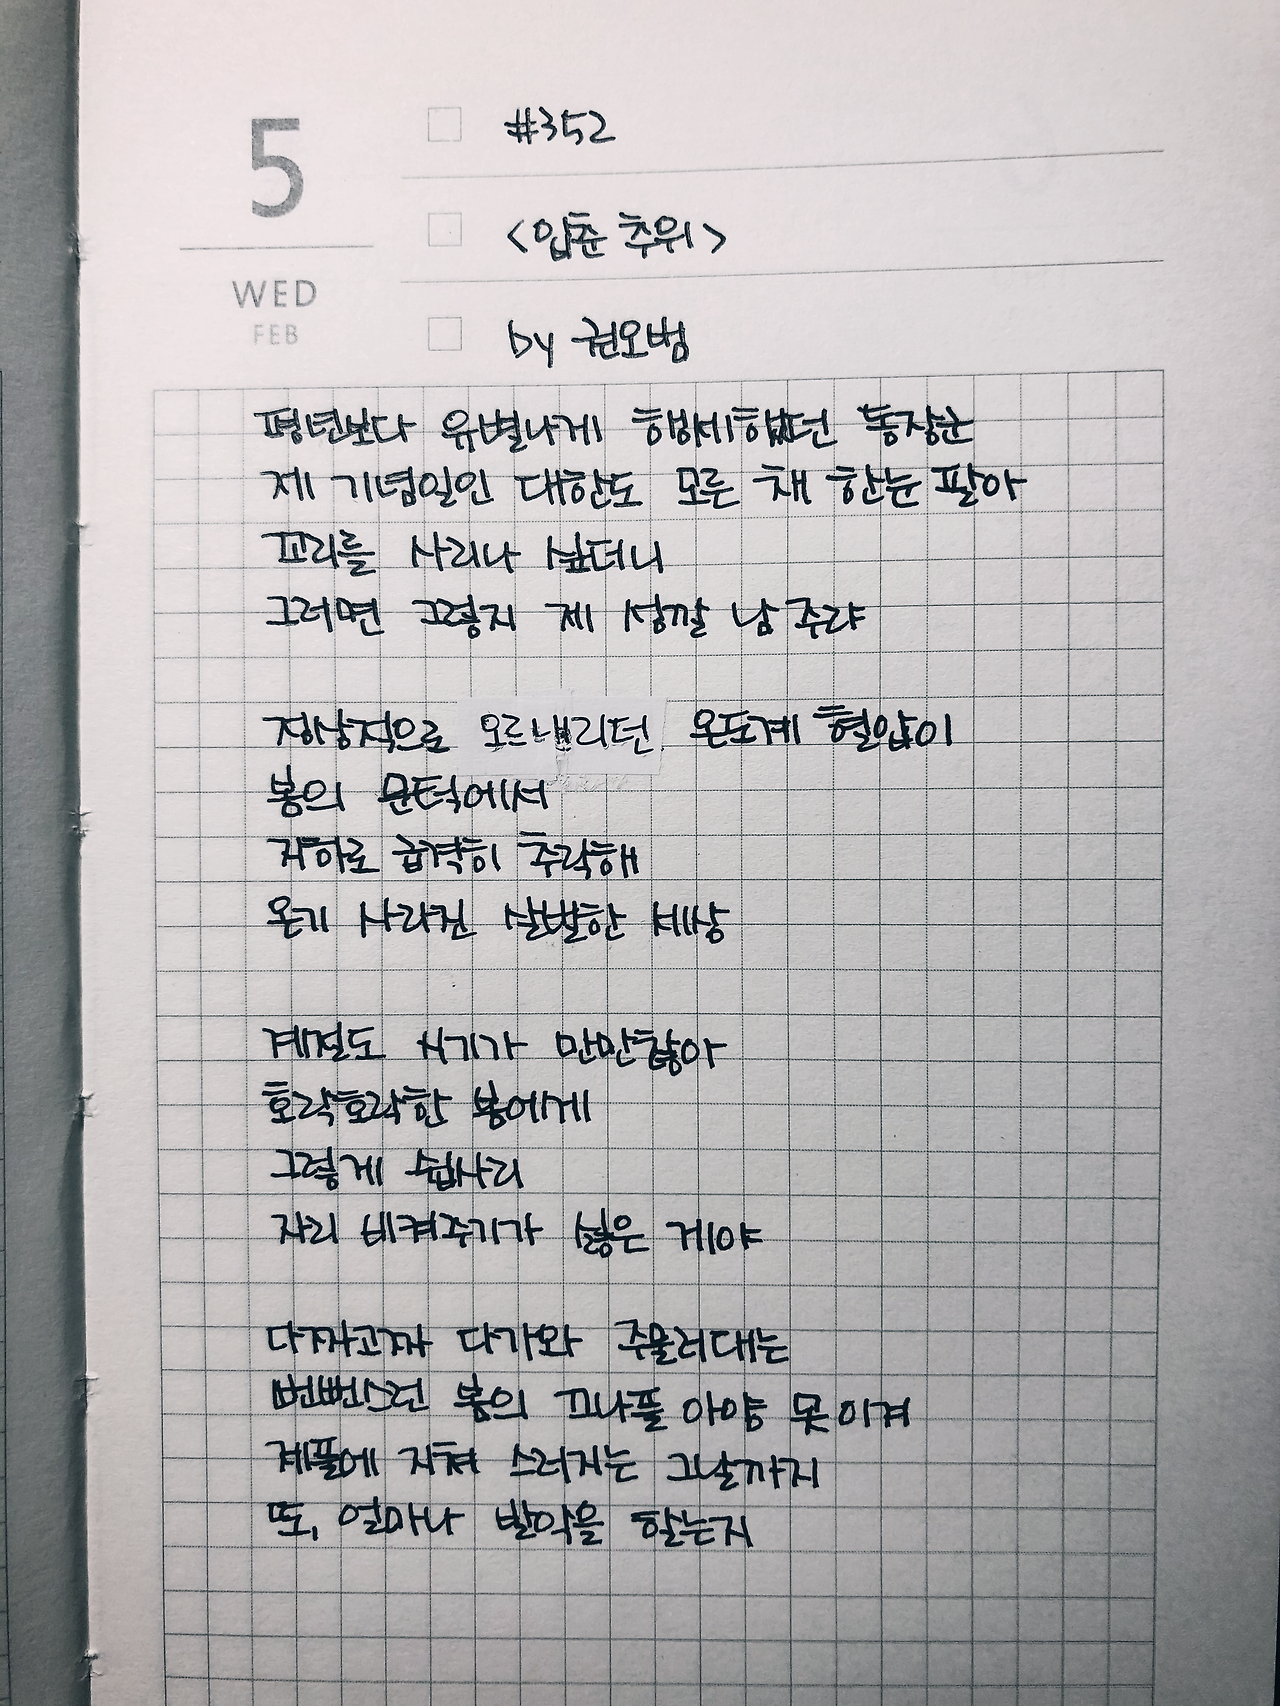 5
WED
FEB
#352
<입춘 추위>
by 권오범
평년보다 유별나게 행세했던 동장군
제 기념일인 대한도 모른 채 한눈 팔아
꼬리를 사리나 싶더니
그러면 그렇지 제 성깔 남 주랴
정상적으로 오르내리던 온도계 혈압이
봄의 문턱에서
저하로 급격히 추락해
온기 사라진 살벌한 세상
계절도 시기가 만만찮아
호락호락한 봄에게
그렇게 쉽사리
자리 비켜주기가 싫은 게야
다짜고짜 다가와 주물러대는
뻔뻔스런 봄의 끄나풀 아양 못 이겨
제풀에 지쳐 스러지는 그날까지
또, 얼마나 발악을 할는지